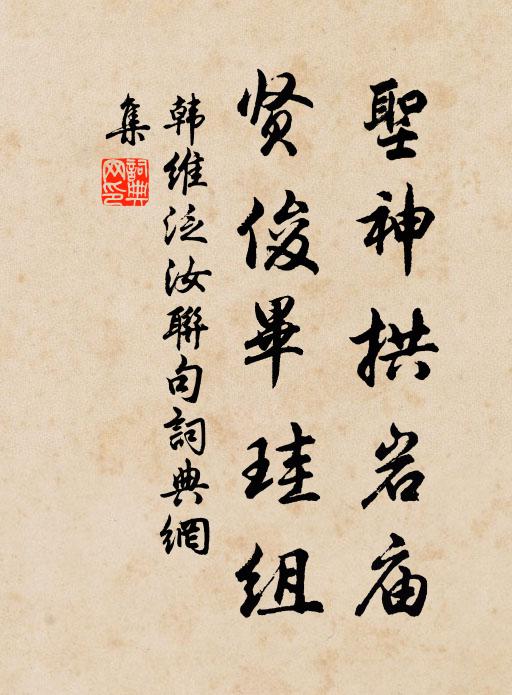 聖神拱岩庙
贤俊畢珪组
韩维泛汝聯句詞典網
集
詞典网印